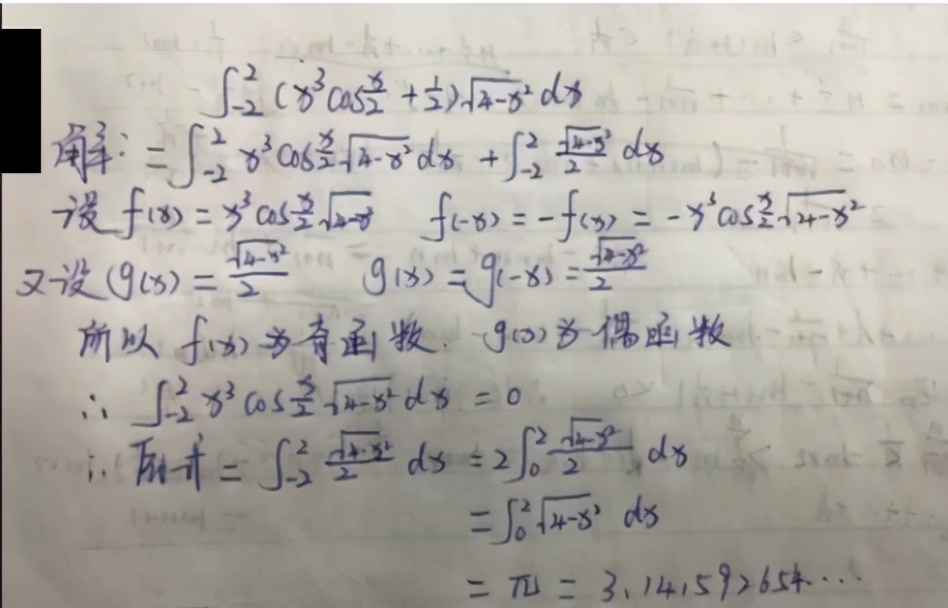 ∫_{-2}^{2} (x³cos x/2 + 1/2)√(4-x²) dx
解: = ∫_{-2}^{2} x³cos x/2 √(4-x²) dx + ∫_{-2}^{2} √(4-x²)/2 dx
设 f(x) = x³cos x/2 √(4-x²) f(-x) = -f(x) = -x³cos x/2 √(4-x²)
又设 g(x) = √(4-x²)/2 g(x) = g(-x) = √(4-x²)/2
所以 f(x)为奇函数. g(x)为偶函数
∴ ∫_{-2}^{2} x³cos x/2 √(4-x²) dx = 0
∴ 原式 = ∫_{-2}^{2} √(4-x²)/2 dx = 2∫_{0}^{2} √(4-x²)/2 dx
= ∫_{0}^{2} √(4-x²) dx
= π = 3.141592654....